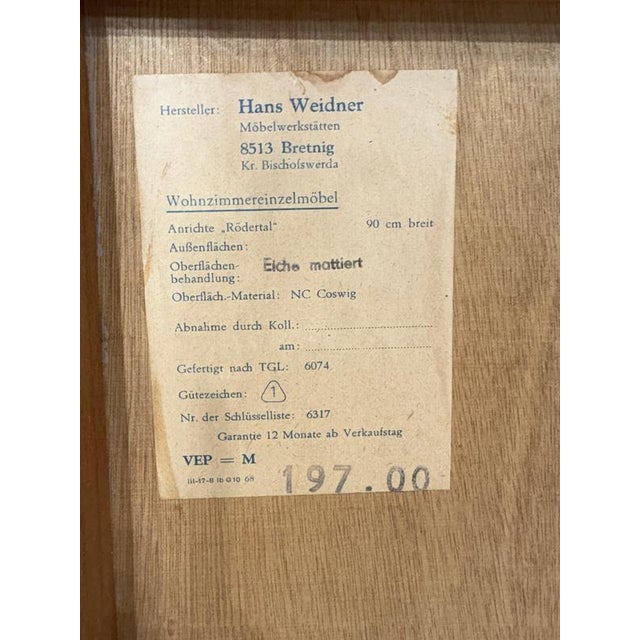 Hersteller: Hans Weidner
Möbelwerkstätten
8513 Bretnig
Kr. Bischofswerda
Wohnzimmereinzelmöbel
Anrichte „Rödertal" 90 cm breit
Außenflächen:
Oberflächen-
behandlung: Eiche mattiert
Oberfläch.-Material: NC Coswig
Abnahme durch Koll.:
am:
Gefertigt nach TGL: 6074
Gütezeichen: 1
Nr. der Schlüsselliste: 6317
Garantie 12 Monate ab Verkaufstag
VEP = M 197.00
III-17-8 Ib G 10 68